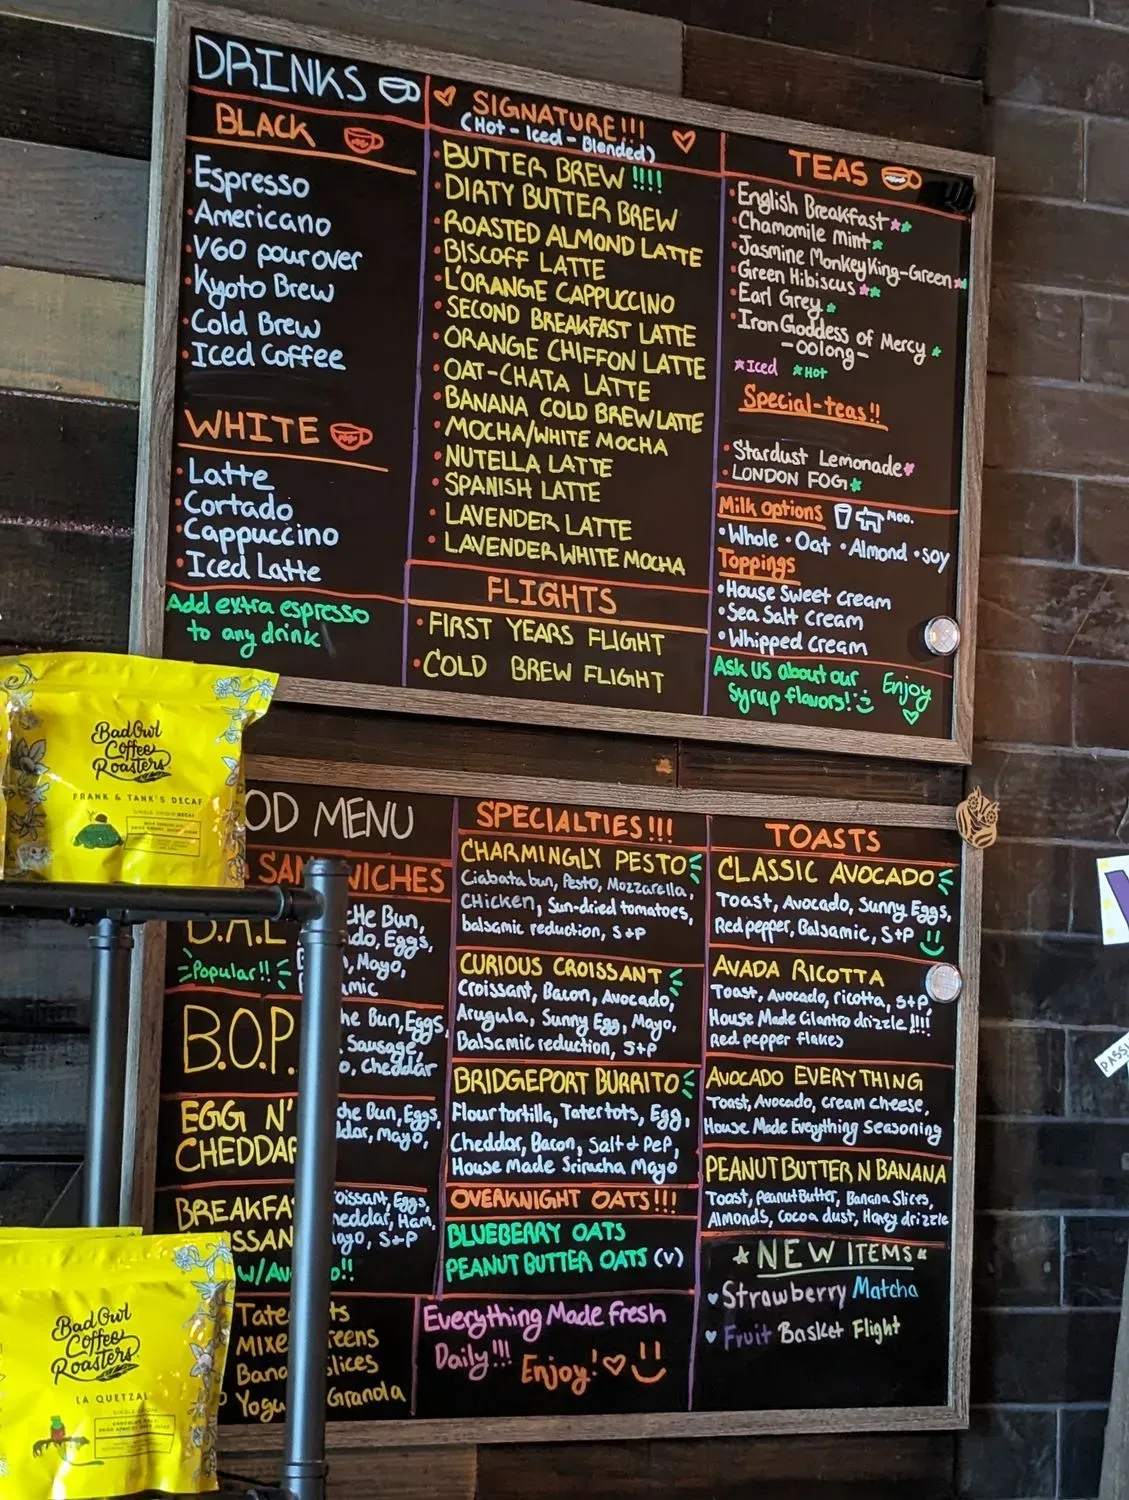 DRINKS
BLACK
Espresso
Americano
V60 pour over
Kyoto Brew
Cold Brew
Iced Coffee
WHITE
Latte
Cortado
Cappuccino
Iced Latte
Add extra espresso
to any drink
SIGNATURE!!!
(Hot - Iced - Blended)
BUTTER BREW !!!!
DIRTY BUTTER BREW
ROASTED ALMOND LATTE
BISCOFF LATTE
L'ORANGE CAPPUCCINO
SECOND BREAKFAST LATTE
ORANGE CHIFFON LATTE
OAT-CHATA LATTE
BANANA COLD BREW LATTE
MOCHA/WHITE MOCHA
NUTELLA LATTE
SPANISH LATTE
LAVENDER LATTE
LAVENDER WHITE MOCHA
FLIGHTS
FIRST YEARS FLIGHT
COLD BREW FLIGHT
TEAS
English Breakfast
Chamomile Mint
Jasmine Monkey King-Green
Green Hibiscus
Earl Grey
Iron Goddess of Mercy
-oolong-
Iced Hot
Special-teas!!
Stardust Lemonade
LONDON FOG
Milk options Moo.
Whole • Oat • Almond • soy
Toppings
House Sweet cream
Sea Salt cream
Whipped cream
Ask us about our
syrup flavors!
Enjoy
OD MENU
SANDWICHES
B.A.E
che Bun,
do, Eggs,
Mayo,
amic
Popular!!
B.O.P.
he Bun, Eggs,
Sausage,
o, Cheddar
EGG N'
CHEDDAR
che Bun, Eggs,
ddar, Mayo,
BREAKFA
SSAN
oissant, Eggs,
heddar, Ham,
ayo, S+P
w/Av o!!
Tate ts
Mixe reens
Bana slices
Yogu Granola
SPECIALTIES!!!
CHARMINGLY PESTO
Ciabata bun, Pesto, Mozzarella,
Chicken, Sun-dried tomatoes,
balsamic reduction, S+P
CURIOUS CROISSANT
Croissant, Bacon, Avocado,
Arugula, Sunny Egg, Mayo,
Balsamic reduction, S+P
BRIDGEPORT BURRITO
Flour tortilla, Tater tots, Egg,
Cheddar, Bacon, Salt & Pep,
House Made Sriracha Mayo
OVERKNIGHT OATS!!!
BLUEBERRY OATS
PEANUT BUTTER OATS (V)
Everything Made fresh
Daily!!! Enjoy!
TOASTS
CLASSIC AVOCADO
Toast, Avocado, Sunny Eggs,
Red pepper, Balsamic, S+P
AVADA RICOTTA
Toast, Avocado, ricotta, S+P,
House Made Cilantro drizzle !!!!
Red pepper flakes
AVOCADO EVERYTHING
Toast, Avocado, cream cheese,
House Made Everything Seasoning
PEANUT BUTTER N BANANA
Toast, Peanut Butter, Banana Slices,
Almonds, Cocoa dust, Honey drizzle
NEW ITEMS
Strawberry Matcha
Fruit Basket Flight
Bad Owl
Coffee
Roasters
FRANK & TANK'S DECAF
SINGLE ORIGIN DECAF
Bad Owl
Coffee
Roasters
LA QUETZAL
PASS